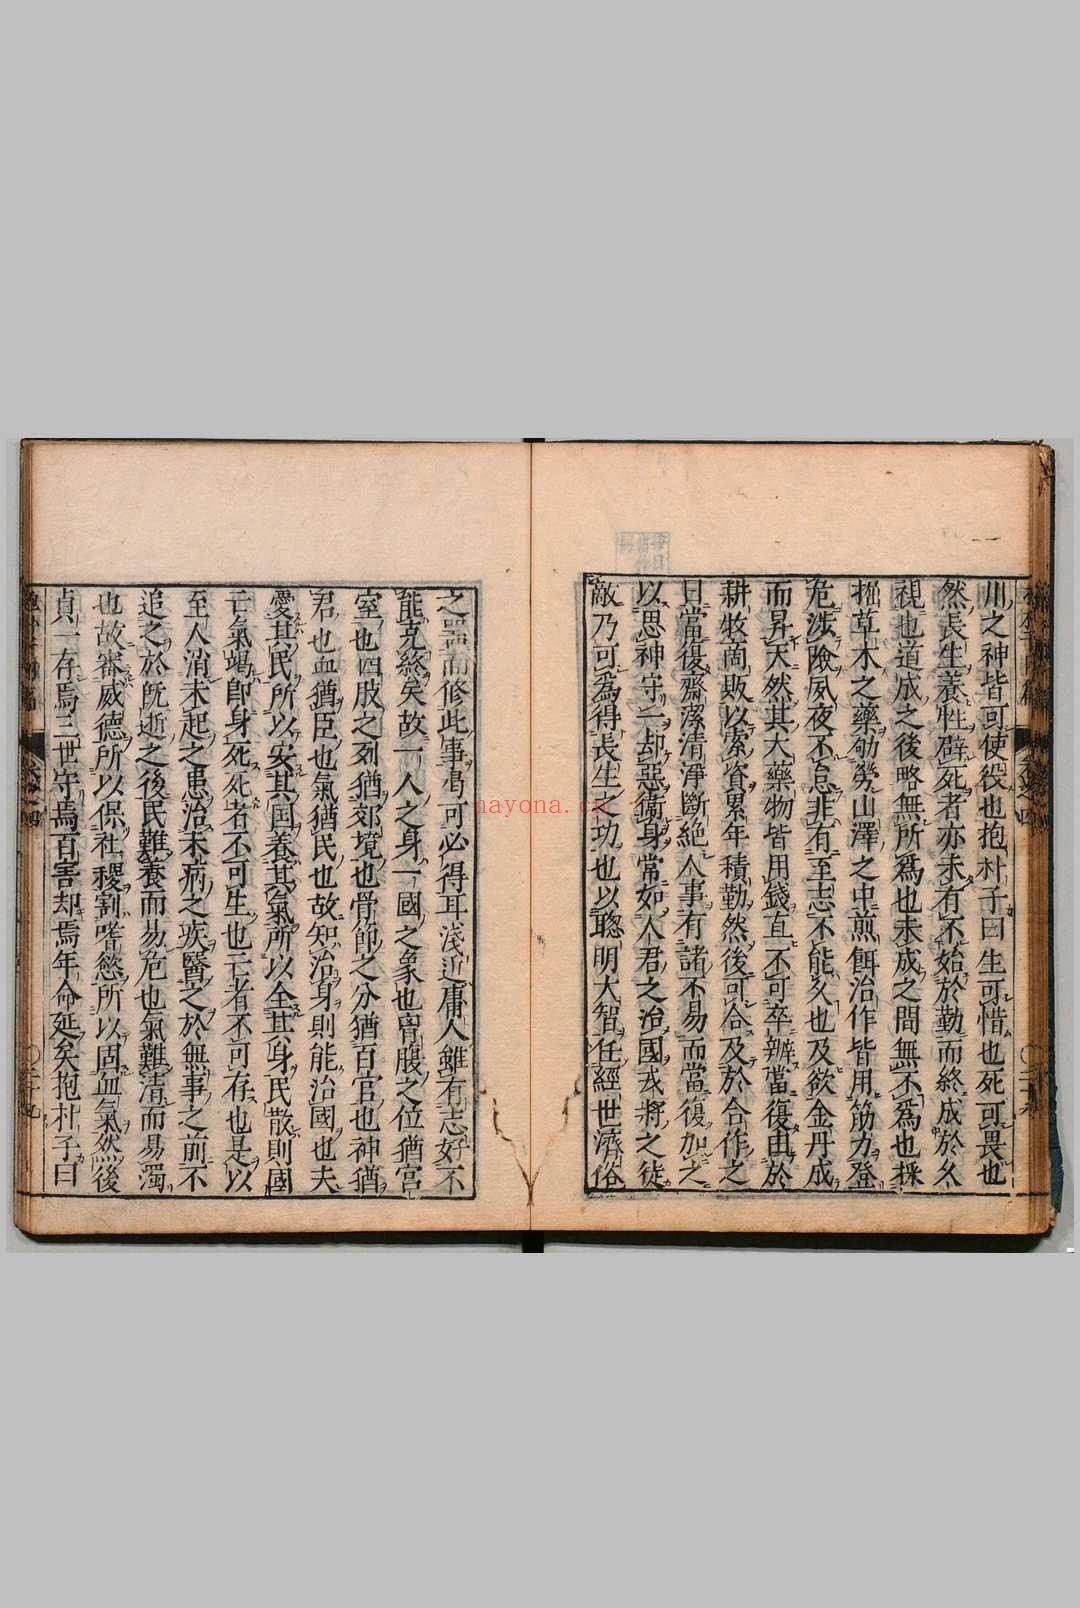 川之神皆可使役也抱朴子曰生可惜也死可畏也
然長生養性辟死者亦未有不始於勤而終成於久
視也道成之後略無所爲也未成之間無不爲也採
掘草木之藥劬勞山澤之中煎餌治作皆用筋力登
危涉險夙夜不怠非有至志不能久也及欲金丹成
而昇天然其大藥物皆用錢直不可卒辦當復由於
耕牧商販以索資累年積勤然後可合及於合作之
日當復齋潔清淨斷絶人事有諸不易而當復加之
以思神守一却惡衞身常如人君之治國戎將之待
敵乃可爲得長生之功也以聰明大智任經世濟俗
之器而修此事乃可必得耳淺近庸人雖有志好不
能克終矣故一人之身一國之象也胷腹之位猶宮
室也四肢之列猶郊境也骨節之分猶百官也神猶
君也血猶臣也氣猶民也故知治身則能治國也夫
愛其民所以安其国養其氣所以全其身民散則國
亡氣竭即身死死者不可生也亡者不可存也是以
至人消未起之患治未病之疾醫之於無事之前不
追之於旣逝之後民難養而易危也氣難清而易濁
也故審威德所以保社稷割嗜慾所以固血氣然後
貞一存焉三世守焉百害却焉年命延矣抱朴子曰
nayona.cn